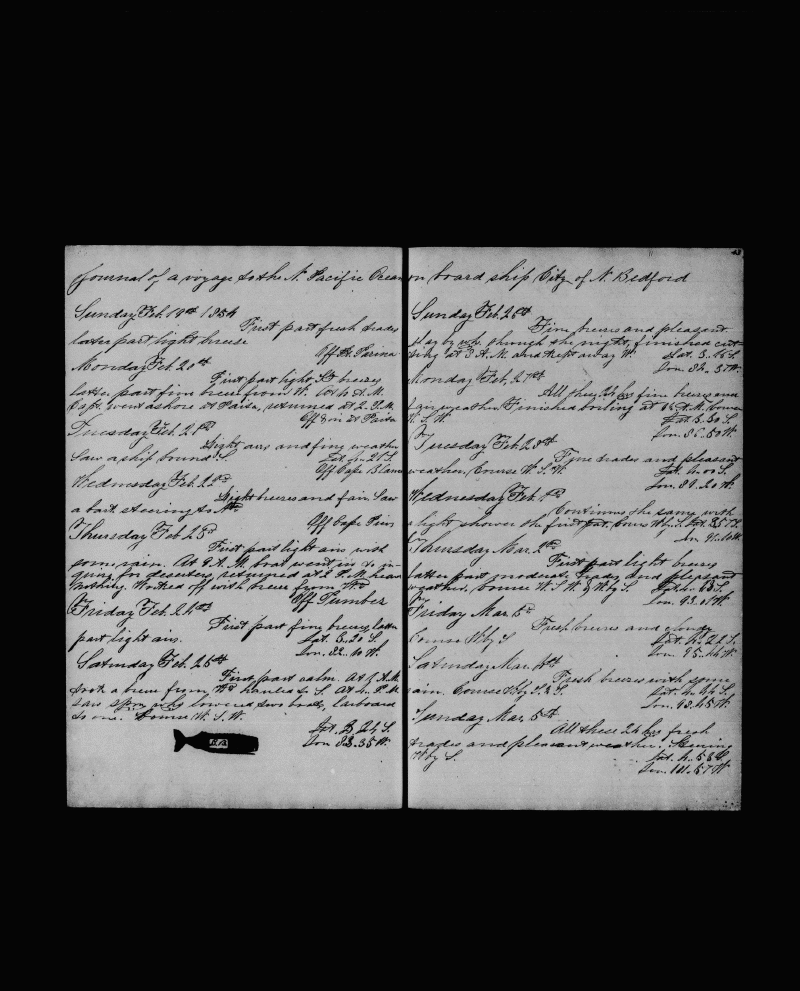 Journal of a voyage to the N. Pacific Ocean
Sunday Feb. 19th 1854
First part fresh trades
latter part light breeze
Off St.
Monday Feb. 20th
First part light breezes
latter part fine breeze from W. At 10 A.M.
Capt. went ashore at Paita, returned at 2 P.M.
Off & in at Paita
Tuesday Feb. 21st
Light airs and fine weather
Saw a ship bound S.
Lat. 21 S.
Off Cape Blanco
Wednesday Feb. 22nd
Light breezes and fair Saw
a bark steering to
Off Cape
Thursday Feb 23d
First part light airs with
some rain. At 9 A.M. boat went in to in-
quire for deserters returned at 2 P.M. heard
nothing. Worked off with breeze from
Off Tumbez
Friday Feb. 24th
First part fine breezes latter
part light airs.
Lat. 3..20 S.
Lon. 82..10 W.
Saturday Feb. 25th
First part calm. At 9 A.M.
took a breeze from Wd hauled to S. At 4 P.M.
saw lowered two boats, Larboard
to one. Course W. S. W.
Lat. 3..24 S.
Lon 83..35 W.
on board ship City of N. Bedford
Sunday Feb. 26th
Fine breeze and pleasant
Lay by through the night, finished cut-
ting at 8 A.M. and kept away W.
Lat. 3. S.
Lon. 84.. W.
Monday Feb. 27th
All these 24 hrs fine breezes and
fair weather. Finished boiling at A.M. Course
W. S. W.
Lat. 3..30 S.
Lon. 86..50 W.
Tuesday Feb. 28th
Fine trades and pleasant
weather. Course W. S. W.
Lat. 4..00 S.
Lon. 89..20 W.
Wednesday Feb. 1st
Continues the same with
a light shower the first part. Course W by S. Lat.
Lon. 91..10 W.
Thursday Mar. 2nd
First part light breezes
latter part moderate trades and pleasant
weather, Course W. S. W. & W. by S.
Lat. 4.. S.
Lon. 93..01 W.
Friday Mar. 3d
Fresh breezes and cloudy
Course W by S
Lat. 4..22 S.
Lon. 95..44 W.
Saturday Mar. 4th
Fresh breezes with some
rain. Course W by S. & S.
Lat. 4..44 S.
Lon. 98..45 W.
Sunday Mar. 5th
All these 24 hrs fresh
trades and pleasant weather. Steering
W by S.
Lat. 4..58 S.
Lon. 101..57 W.